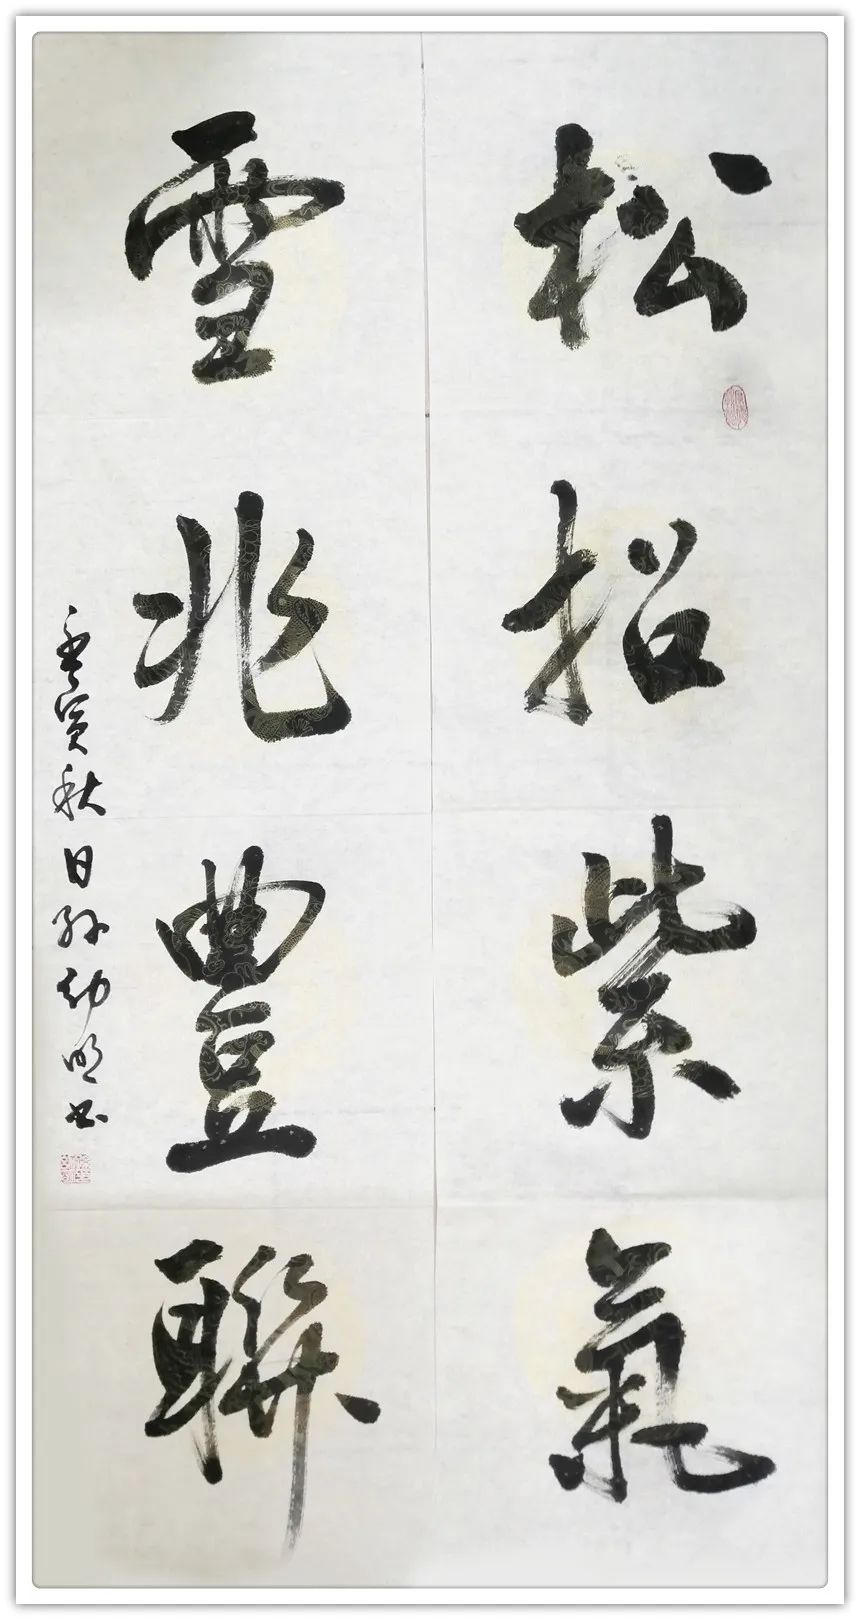 松招紫氣
雪兆豊聯
壬寅秋日孫幼明书